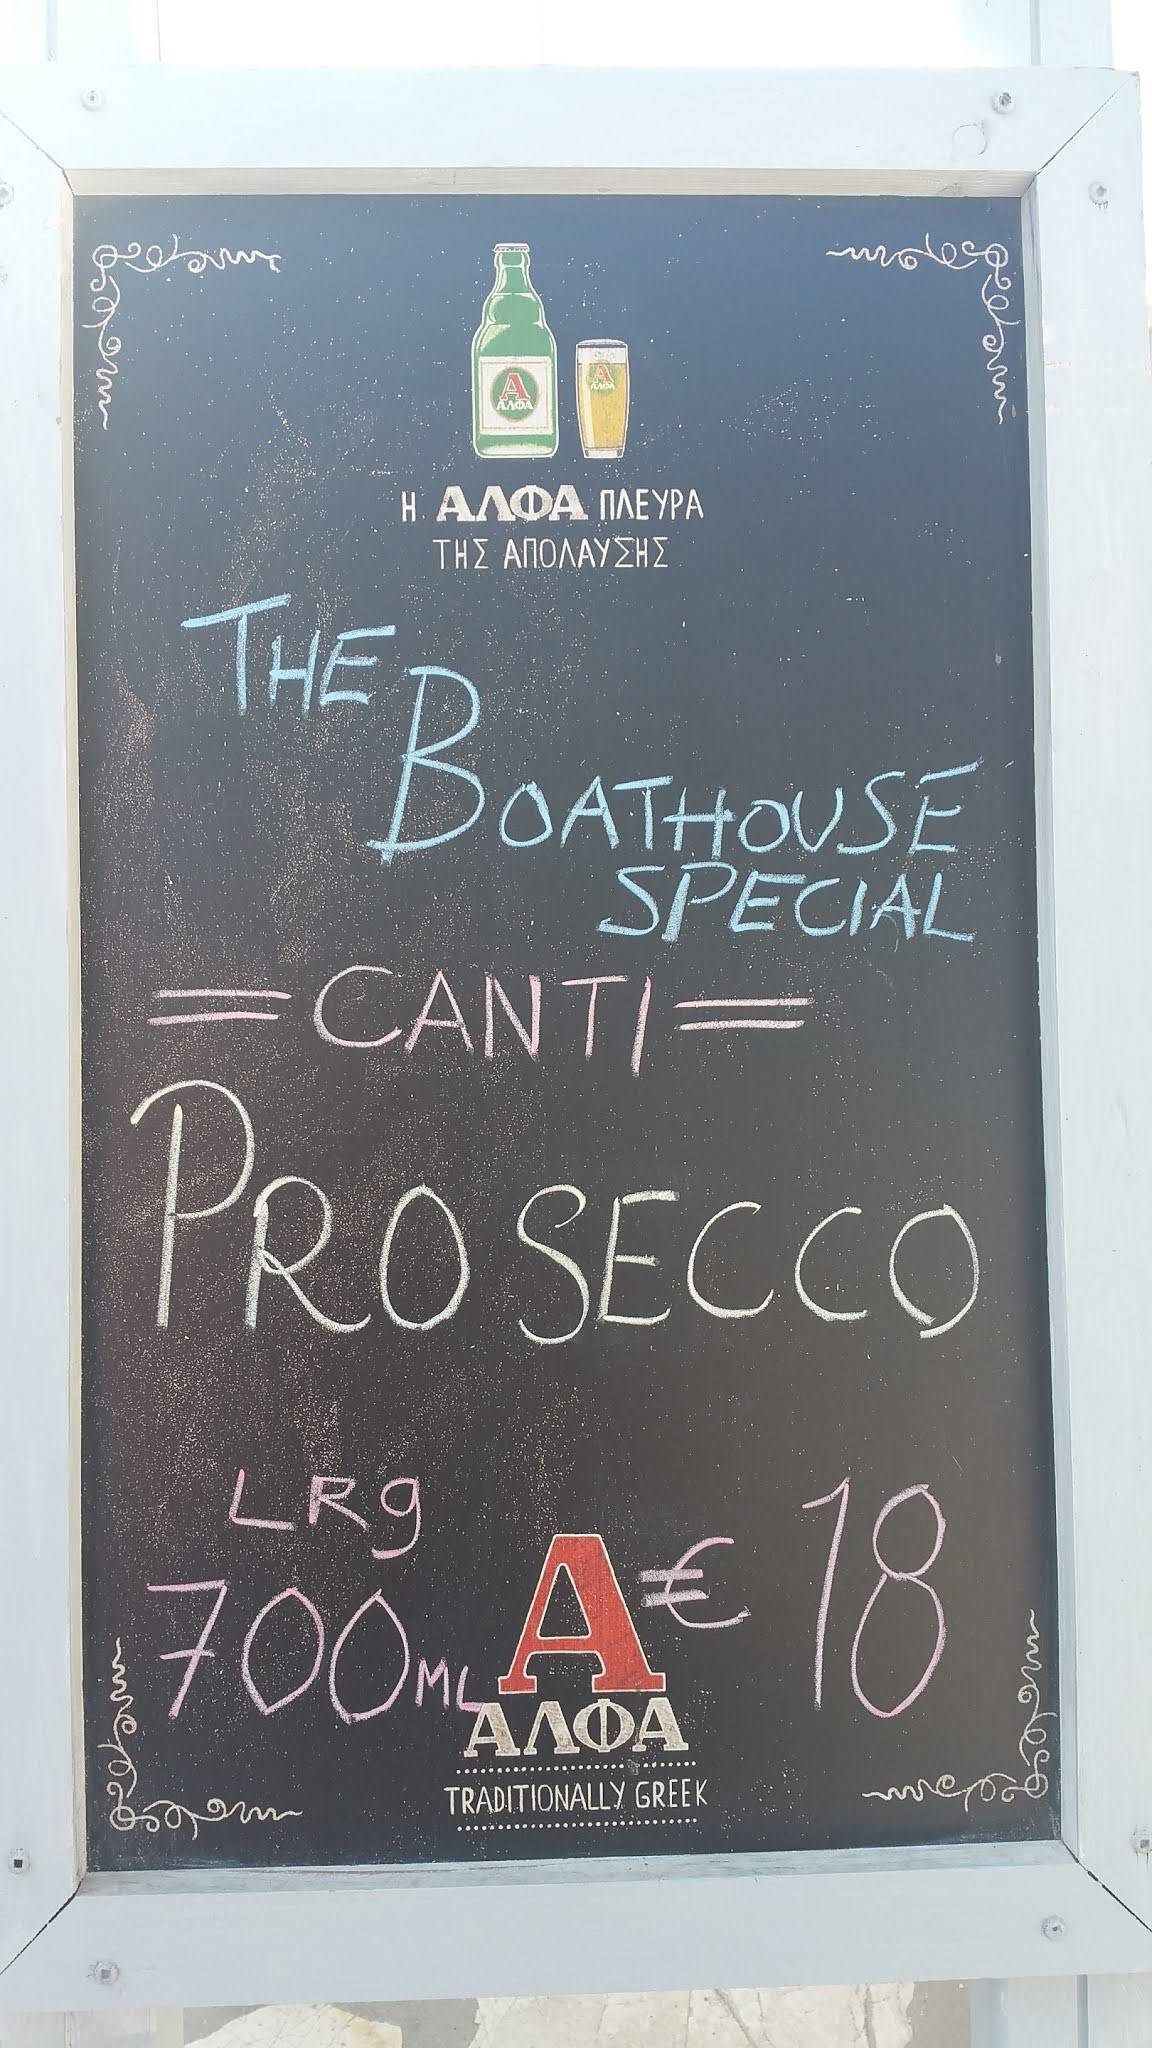 A
ΑΛΦΑ
A
ΑΛΦΑ
Η ΑΛΦΑ ΠΛΕΥΡΑ
ΤΗΣ ΑΠΟΛΑΥΣΗΣ
THE
BOATHOUSE
SPECIAL
= CANTI =
PROSECCO
LRg
700ML
€ 18
A
ΑΛΦΑ
TRADITIONALLY GREEK